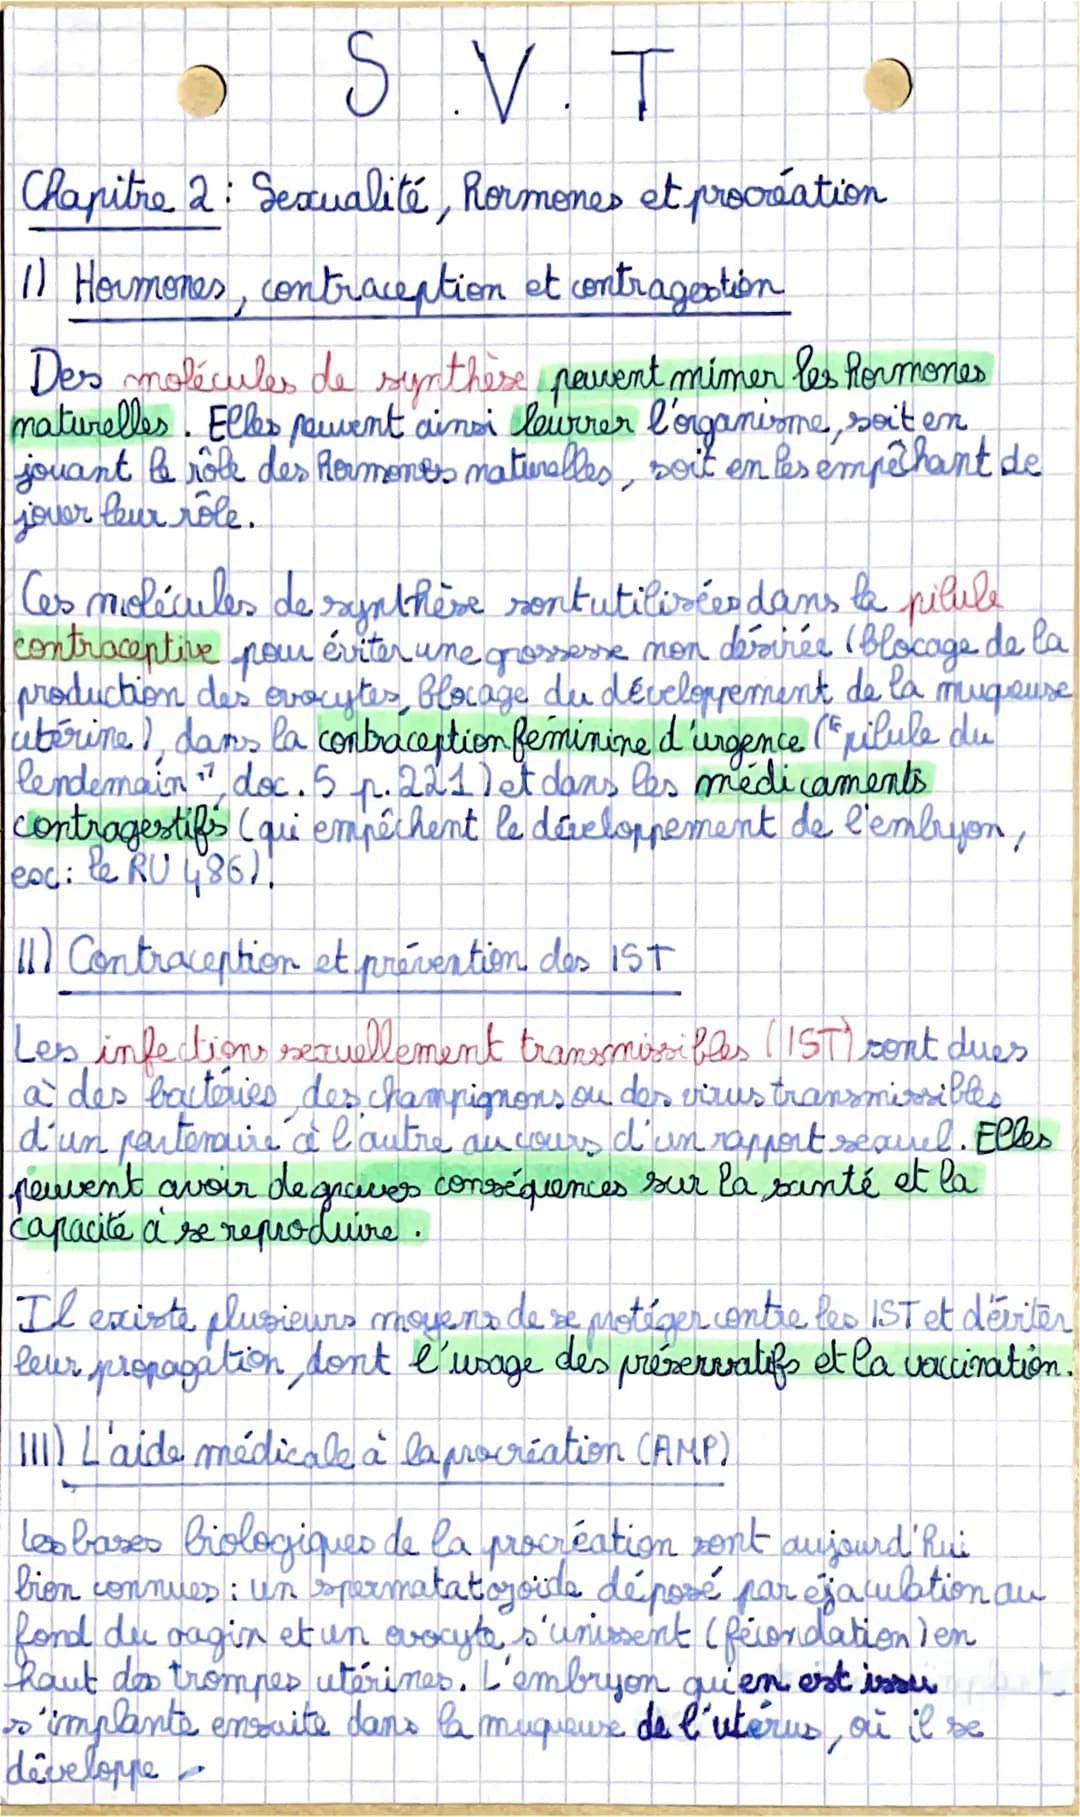 S.V.T
Chapitre 2 : Sexualité, hormones et procréation
I) Hormones, contraception et contragestion
Des molécules de synthèse peuvent mimer les hormones
naturelles. Elles peuvent ainsi leurrer l'organisme, soit en
jouant le rôle des hormones naturelles, soit en les empêchant de
jouer leur rôle.
Ces molécules de synthèse sont utilisées dans la pilule
contraceptive pour éviter une grossesse non désirée (blocage de la
production des ovocytes, blocage du développement de la muqueuse
utérine), dans la contraception féminine d'urgence ("pilule du
lendemain", doc. 5 p. 221) et dans les médicaments
contragestifs (qui empêchent le développement de l'embryon,
ex : le RU 486).
II) Contraception et prévention des IST
Les infections sexuellement transmissibles (IST) sont dues
à des bactéries, des champignons ou des virus transmissibles
d'un partenaire à l'autre au cours d'un rapport sexuel. Elles
peuvent avoir de graves conséquences sur la santé et la
capacité à se reproduire.
Il existe plusieurs moyens de se protéger contre les IST et d'éviter
leur propagation, dont l'usage des préservatifs et la vaccination.
III) L'aide médicale à la procréation (AMP)
Les bases biologiques de la procréation sont aujourd'hui
bien connues : un spermatatozoïde déposé par éjaculation au
fond du vagin et un ovocyte s'unissent (fécondation) en
haut des trompes utérines. L'embryon qui en est issu
s'implante ensuite dans la muqueuse de l'utérus, où il se
développe.